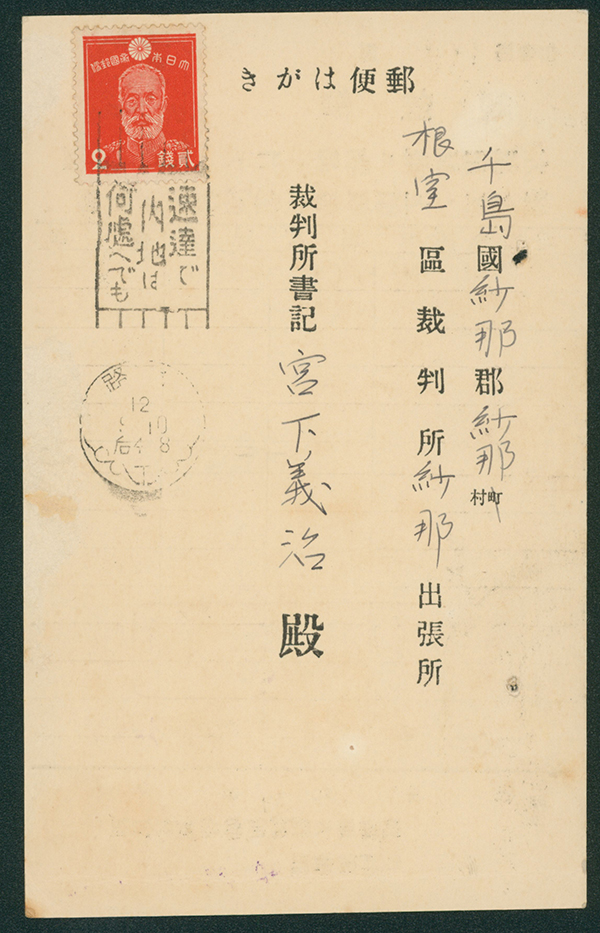 郵便はがき
大日本帝國郵便
貳錢
2
速達で
内地は
何處へでも
路
12
10
8
千島國紗那郡紗那町村
根室區裁判所紗那出張所
裁判所書記 宮下義治 殿